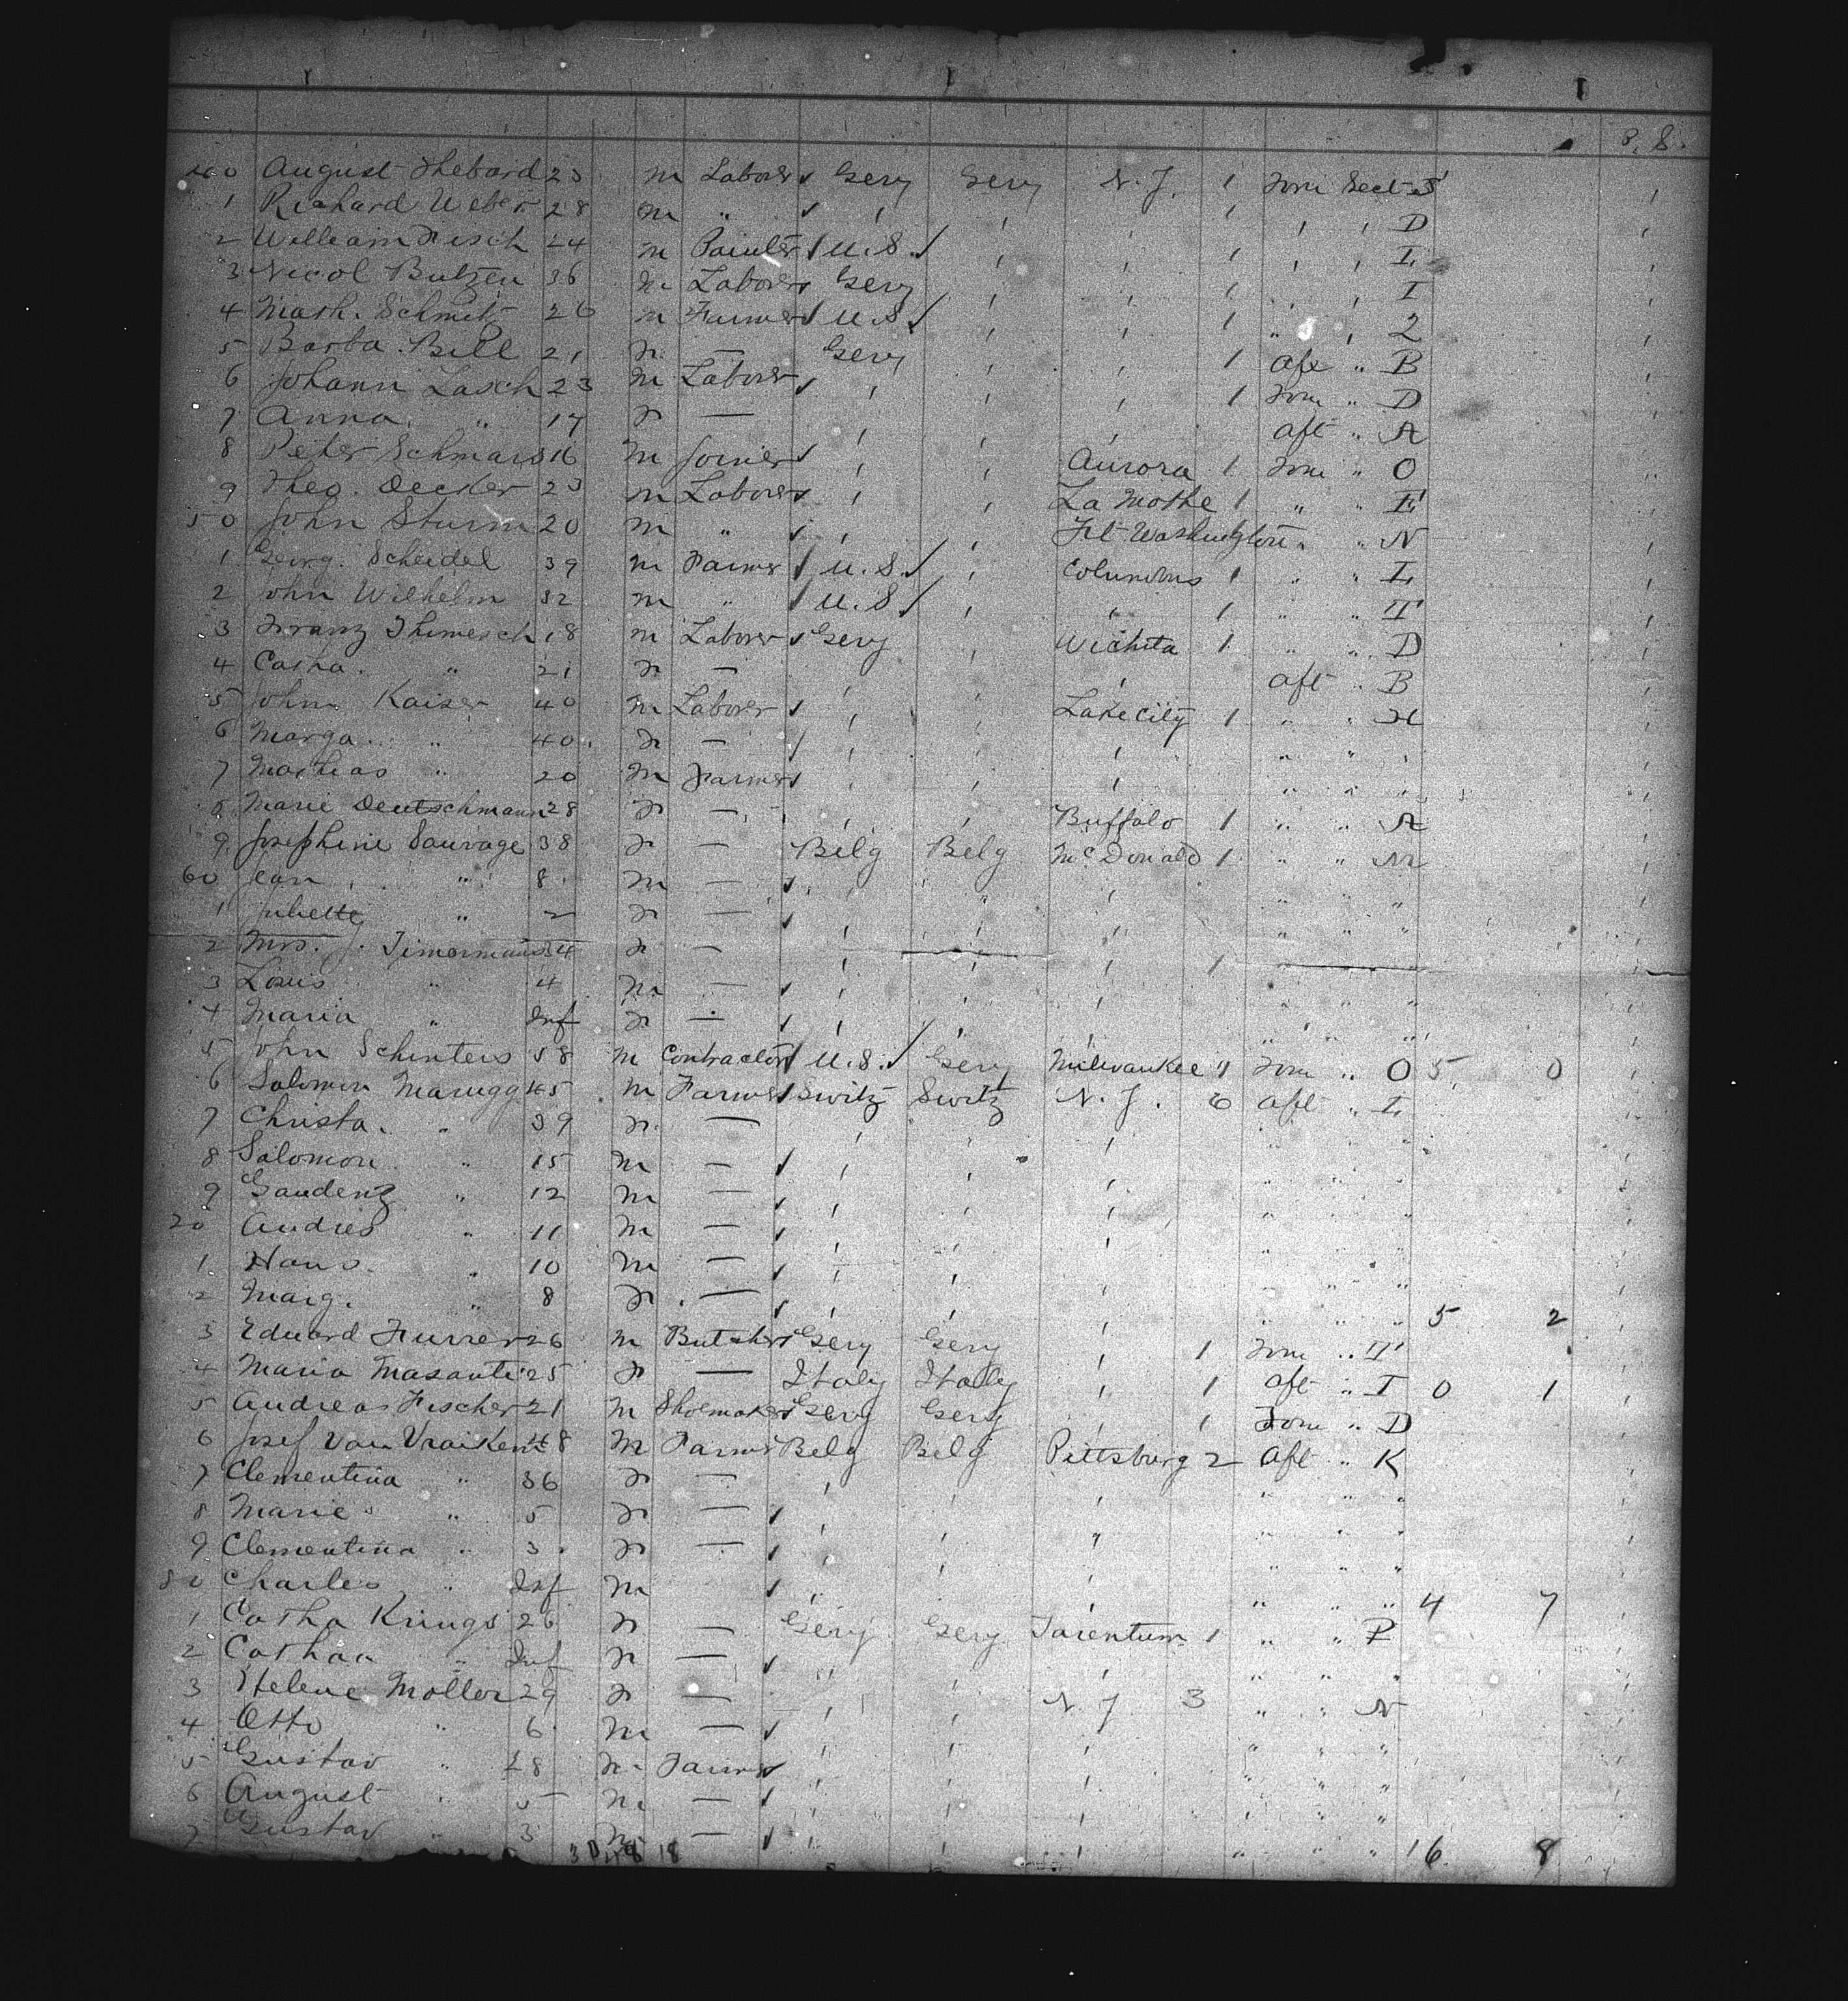 8. 8.
40 August Thebard 23 m Laborer Gery Gery N. J. 1 Forw Sect. J
1 Richard Weber 28 m " ' ' ' 1 ' ' D
2 William Fisch 24 m Painter U.S. ' ' 1 ' ' L
3 Nicol Butzen 36 m Laborer Gery ' ' 1 ' ' I
4 Math. Schmitt 26 m Farmer U.S. ' ' 1 " ' 2
5 Barba. Bill 21 f — Gery ' ' 1 aft " B
6 Johann Lasch 23 m Laborer ' ' ' 1 Forw " D
7 Anna " 17 f — ' ' ' aft " A
8 Peter Schmard 16 m Joiner ' ' Aurora 1 Forw " O
9 Theo. Decker 23 m Laborer ' ' La Mothe 1 " " E
50 John Sturm 20 m " ' ' Ft Washington " " N
1 Georg. Scheidel 39 m Farmer U.S. ' Columbus 1 " " L
2 John Wilhelm 32 m " U.S. ' ' 1 " " H
3 Franz Thimesch 18 m Laborer Gery ' Wichita 1 " " D
4 Catha. " 21 f — ' ' ' aft " B
5 John Kaiser 40 m Laborer ' ' Lake City 1 " " H
6 Marga. " 40 f — ' ' ' " " "
7 Mathias " 20 m Farmer ' ' ' " " "
8 Marie Deutschmann 28 f — ' ' Buffalo 1 " " A
9 Josephine Sauvage 38 f — Belg Belg McDonald 1 " " M
60 Jean " 8 m — ' ' ' " " "
1 Juliette " 2 f — ' ' ' " " "
2 Mrs. J. Timermans 34 f — ' ' ' 1
3 Louis " 4 m — ' ' ' " " "
4 Maria " Inf f — ' ' ' " " "
5 John Schinters 58 m Contractor U.S. Gery Milwaukee 1 Forw " O 5 0
6 Salomon Marugg 45 m Farmer Switz Switz N. J. 6 aft " L
7 Christa. " 39 f — ' ' ' " " "
8 Salomon " 15 m — ' ' ' " " "
9 Gaudenz " 12 m — ' ' ' " " "
70 Andres " 11 m — ' ' ' " " "
1 Hans " 10 m — ' ' ' " " "
2 Marg. " 8 f — ' ' ' " " " 5 2
3 Eduard Furrer 26 m Butcher Gery Gery ' 1 Forw " H
4 Maria Masanti 25 f — Italy Italy ' 1 aft " I 0 1
5 Andreas Fischer 21 m Shoemaker Gery Gery ' 1 Forw " D
6 Josef Van Vraikent 48 m Farmer Belg Belg Pittsburg 2 aft " K
7 Clementina " 36 f — ' ' ' " " "
8 Marie " 5 f — ' ' " " " "
9 Clementina " 3 f — ' ' ' " " "
80 Charles " Inf m ' ' ' " " " 4 7
1 Catha Krings 26 f — Gery Gery Tarentum 1 " " P
2 Cathaa " Inf f — ' ' ' " " "
3 Helene Moller 29 f — ' ' N. J. 3 " " N
4 Otto " 6 m — ' ' ' " " "
5 Gustav " 28 m Farmer ' ' ' " " "
6 August " 5 m — ' ' ' " " "
7 Gustav " 3 m — ' ' ' " " " 16 8
30 48 18